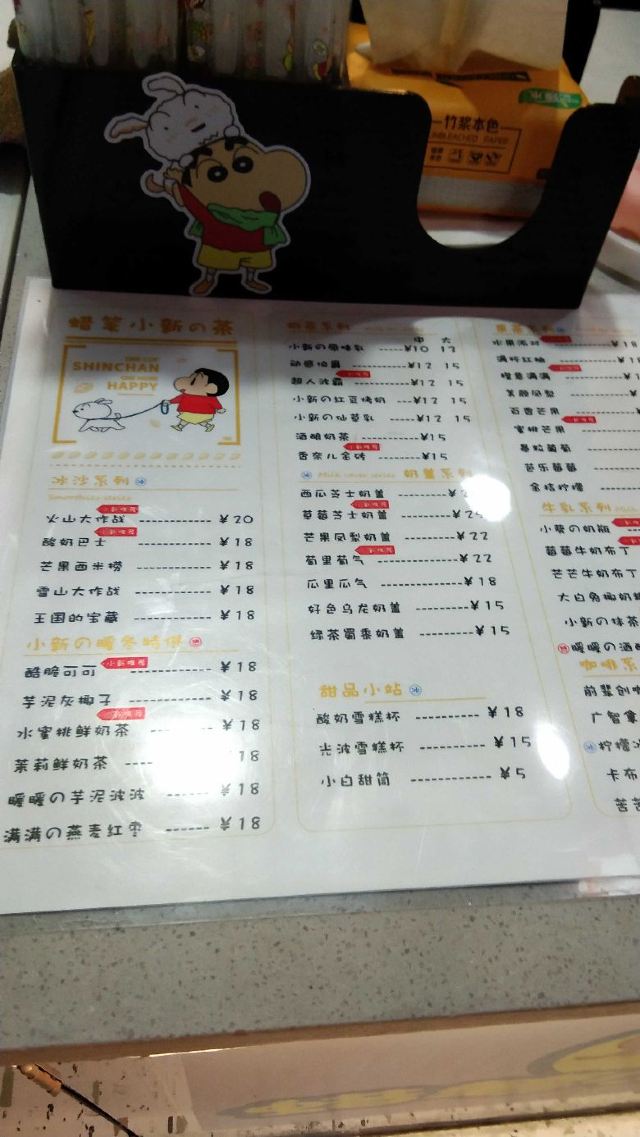 竹浆本色
UNBLEACHED PAPER
蜡笔小新の茶
SHINCHAN
HAPPY
冰沙系列
Smoothies series
火山大作战 ¥20
酸奶巴士 ¥18
芒果西米捞 ¥18
雪山大作战 ¥18
王国的宝藏 ¥18
小新の暖冬特供
酷脆可可 小新推荐 ¥18
芋泥灰椰子 ¥18
水蜜桃鲜奶茶 ¥18
茉莉鲜奶茶 18
暖暖の芋泥波波 ¥18
满满の燕麦红枣 ¥18
奶茶系列
中 大
小新の原味乳 ¥10 12
动感拍霸 ¥12 15
超人波霸 ¥12 15
小新の红豆烤奶 ¥12 15
小新の仙草乳 ¥12 15
酒酿奶茶 ¥15
香奈儿金砖 ¥15
奶盖系列
西瓜芝士奶盖
草莓芝士奶盖
芒果凤梨奶盖 ¥22
萄里萄气 ¥22
瓜里瓜气 ¥18
好色乌龙奶盖 ¥15
绿茶蜀黍奶盖 ¥15
甜品小站
酸奶雪糕杯 ¥18
光波雪糕杯 ¥15
小白甜筒 ¥5
果茶系列
水果派对 ¥18
满杯红柚
橙意满满
芙颜凤梨
百香芒果
蜜桃芒果
暴粒葡萄
芭乐莓莓
金桔柠檬
牛乳系列
小葵の奶瓶
莓莓牛奶布丁
芒芒牛奶布丁
大白兔椰奶
小新の抹茶
暖暖の酒酿
咖啡系
前辈创
广智拿
柠檬冰
卡布
苦苦